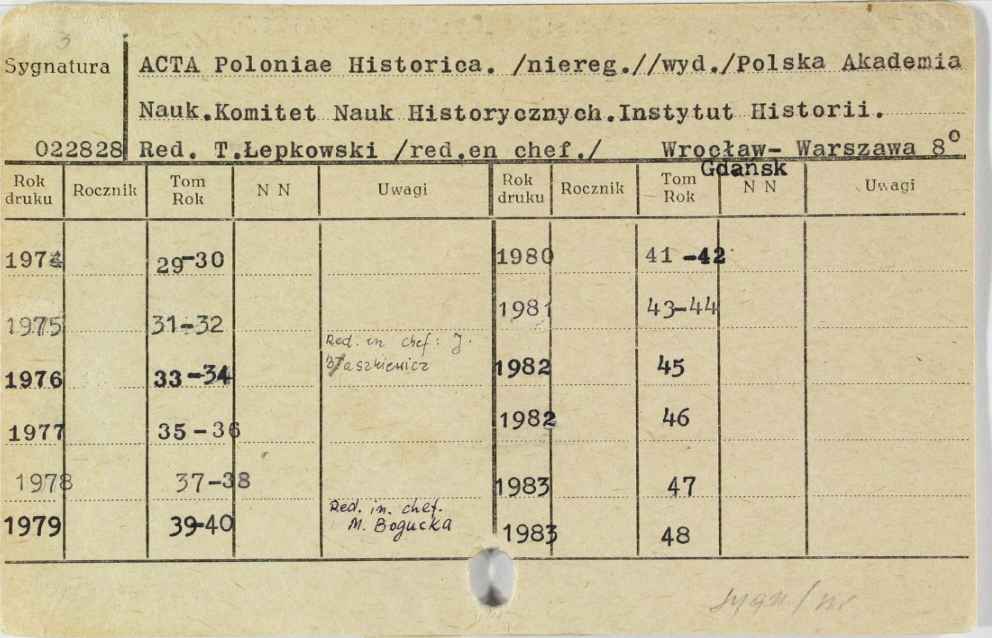 3
Sygnatura ACTA Poloniae Historica. /niereg.//wyd./Polska Akademia
Nauk.Komitet Nauk Historycznych.Instytut Historii.
022828 Red. T.Łepkowski /red.en chef./ Wrocław- Warszawa 8°
Gdańsk
Rok druku Rocznik Tom Rok N N Uwagi Rok druku Rocznik Tom Rok N N Uwagi
1974 29-30 1980 41-42
1975 31-32 1981 43-44
Red. in chef: J.
Błaszkiewicz
1976 33-34 1982 45
1977 35-36 1982 46
1978 37-38 1983 47
Red. in. chef.
M. Bogucka
1979 39-40 1983 48
sygn./nr